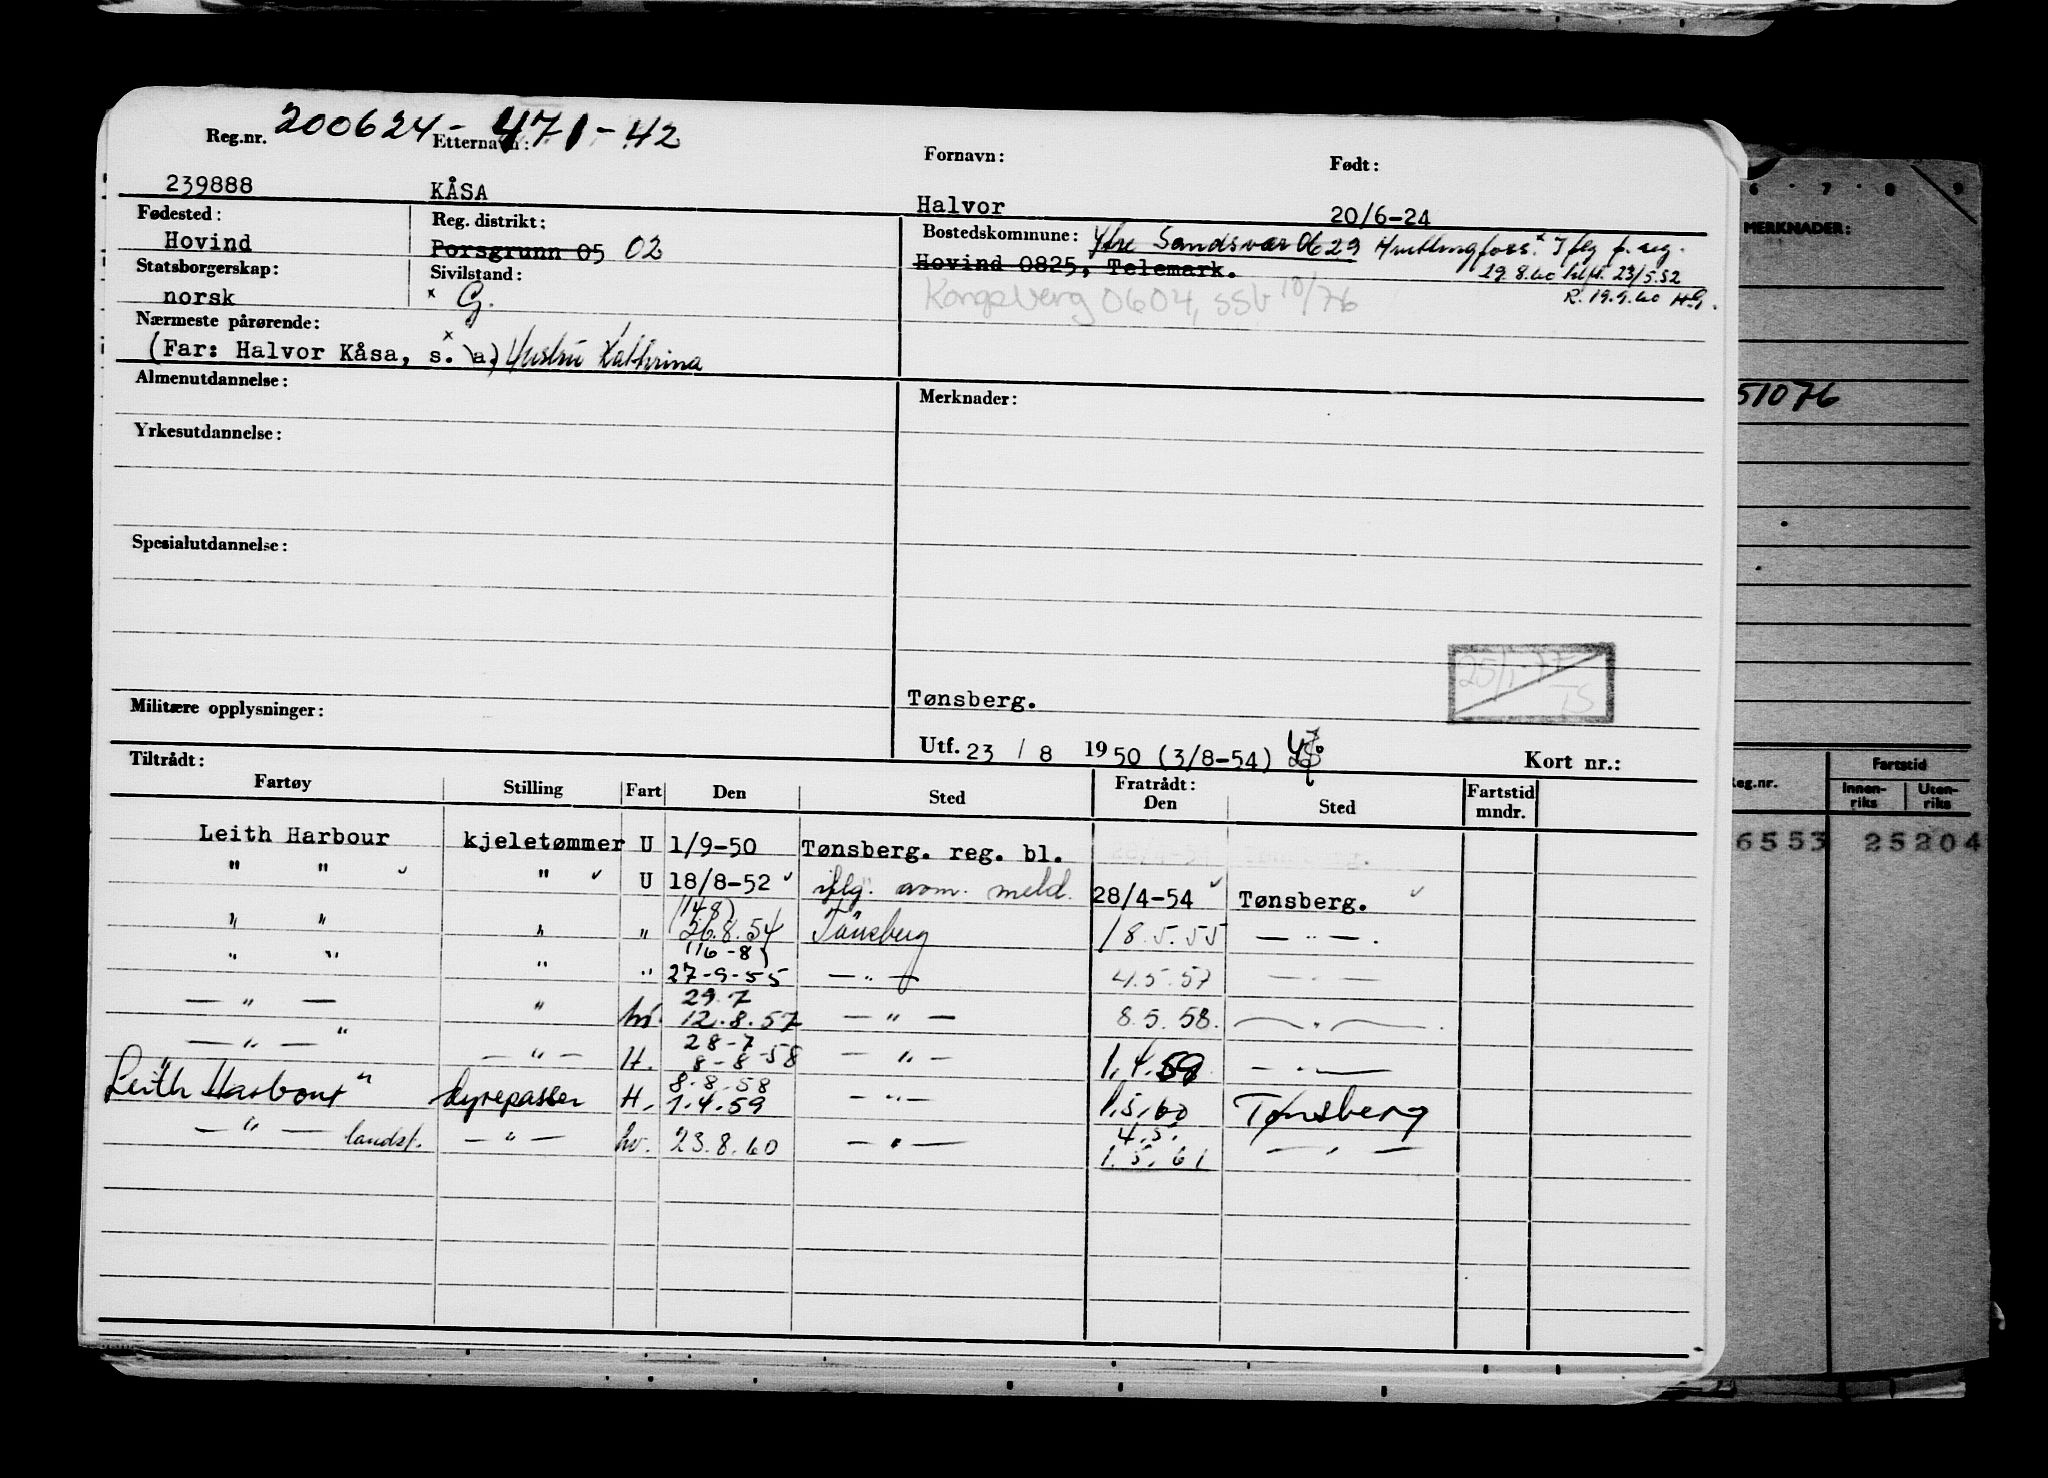 Reg.nr. 200624-471-42 Etternavn: Fornavn: Født:
239888 KÅSA Halvor 20/6-24
Fødested: Reg. distrikt: Bostedskommune: Ytre Sandsvær 0629 Hvittingfoss.
Hovind Porsgrunn 05 02 Hovind 0825, Telemark. 19.8.60 23/5.52
Statsborgerskap: Sivilstand: Kongsberg 0604, SSb 10/76 R. 19.9.60 H.G.
norsk x G.
Nærmeste pårørende:
(Far: Halvor Kåsa, s. a.) Hustru Kathrina
Almenutdannelse: Merknader:
Yrkesutdannelse:
Spesialutdannelse:
25/1-77 TS
Tønsberg.
Militære opplysninger:
Utf. 23 / 8 1950 (3/8-54) Kort nr.:
Tiltrådt: Fratrådt:
Fartøy Stilling Fart Den Sted Den Sted Fartstid mndr.
Leith Harbour kjeletømmer U 1/9-50 Tønsberg. reg. bl.
" " " U 18/8-52 iflg. avm. meld. 28/4-54 Tønsberg.
(14-8)
" " " " 26.8.54 Tønsberg 18.5.55 — " — .
(16-8)
" " " " 27-9-55 — " — 4.5.57 — " —
29.7
— " — " hv. 12.8.57 — " — 8.5.58. — " — .
28-7
— " — " — " — H. 8-8-58 — " — 1.4.59 — " —
8.8.58
Leith Harbour " dyrepasser H. 1.4.59 — " — 1.5.60 Tønsberg
4.5.
— " — landst. — " — hv. 23.8.60 — " — 1.5.61 — " —
6 · 7 · 8 · 9
MERKNADER:
51076
Reg.nr. Fartstid
Innen-riks Uten-riks
6553 25204